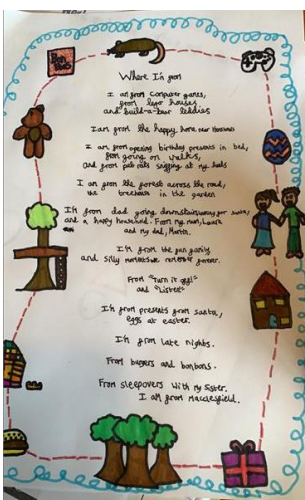 Where I'm from
I am from computer games,
from lego houses
and build-a-bear teddies
I am from the happy, home near
I am from opening birthday presents in bed,
from going on walks,
and from pet cats sniffing at my heels
I am from the forest across the road,
the treehouse in the garden
I'm from dad going downstairs for
and a happy household. From my mum, Laura
and my dad, Martin.
I'm from the fun family
and silly remember forever.
From "Turn it off!"
and "Listen"
I'm from presents from santa,
eggs at easter.
I'm from late nights.
From burgers and bonbons.
From sleepovers with my sister.
I am from Macclesfield.